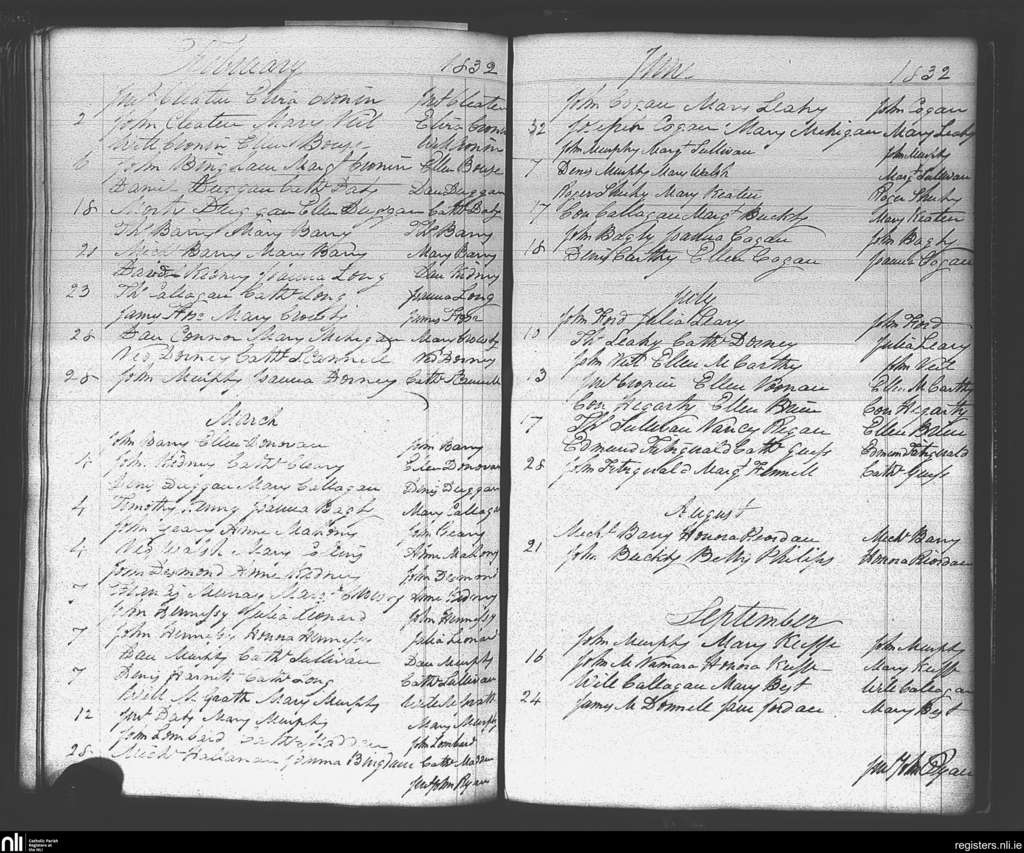 February 1832
Jnº Cleater Eliza Cronin Jnº Cleater
2 John Cleater Mary Veil Eliza Cronin
Will Cronin Ellen Bouse Will Cronin
6 John Bingham Margt Cronin Ellen Bouse
Daniel Duggan Cathe Daly Dan Duggan
18 Morty Duggan Ellen Duggan Cathe Daly
Ths Barry Mary Barry Ths Barry
21 Mich Barry Mary Barry Mary Barry
David Kidney Joanna Long Dan Kidney
23 Ths Callagan Cathe Long Joanna Long
James Mary Crowly James
26 Dan Connor Mary Mehigan Mary Crowly
Ned Dorney Cathe Ned Dorney
28 John Murphy Joanna Dorney Cathe
March
John Barry Ellen Donovan John Barry
4 John Kidney Cathe Cleary Ellen Donovan
Denis Duggan Mary Callagan Denis Duggan
4 Timothy Joanna Bagly Mary Callagan
John Geary Anne Mahony John Geary
4 Ned Walsh Mary Collins Anne Mahony
John Desmond Anne Kidney John Desmond
7 Margt Anne Kidney
John Hennessy Julia Leonard John Hennessy
7 John Hennessy Honora Hennessy Julia Leonard
Dan Murphy Cathe Sullivan Dan Murphy
7 Denis Cathe Long Cathe Sullivan
Will McGrath Mary Murphy Will McGrath
12 Jnº Daly Mary Murphy Mary Murphy
John Lombard Cathe Madden John Lombard
28 Michl Joanna Bingham Cathe Madden
John Ryan
June 1832
John Cogan Mary Leahy John Cogan
32 Cogan Mary Mehigan Mary Leahy
John Murphy Margt Sullivan John Murphy
7 Denis Murphy Mary Walsh Margt Sullivan
Roger Sheehy Mary Keatin Roger Sheehy
17 Con Callagan Margt Buckly Mary Keatin
John Bagly Joanna Cogan John Bagly
18 Denis Carthy Ellen Cogan Joanna Cogan
July
John Ford Julia Leary John Ford
13 Ths Leahy Cathe Dorney Julia Leary
John Veil Ellen McCarthy John Veil
13 Jnº Cronin Ellen Noonan Ellen McCarthy
Con Hegarty Ellen Brien Con Hegarty
17 Ths Sullivan Nancy Regan Ellen Brien
Edmund Fitzgerald Cathe Edmund Fitzgerald
28 John Fitzgerald Margt Cathe
August
Michl Barry Honora Riordan Michl Barry
21 John Buckly Betty Philips Honora Riordan
September
John Murphy Mary Keeffe John Murphy
16 John McNamara Honora Keeffe Mary Keeffe
Will Callagan Mary Best Will Callagan
24 James McDonnell Jane Jordan Mary Best
John Ryan
nli Catholic Parish Registers at the NLI
registers.nli.ie